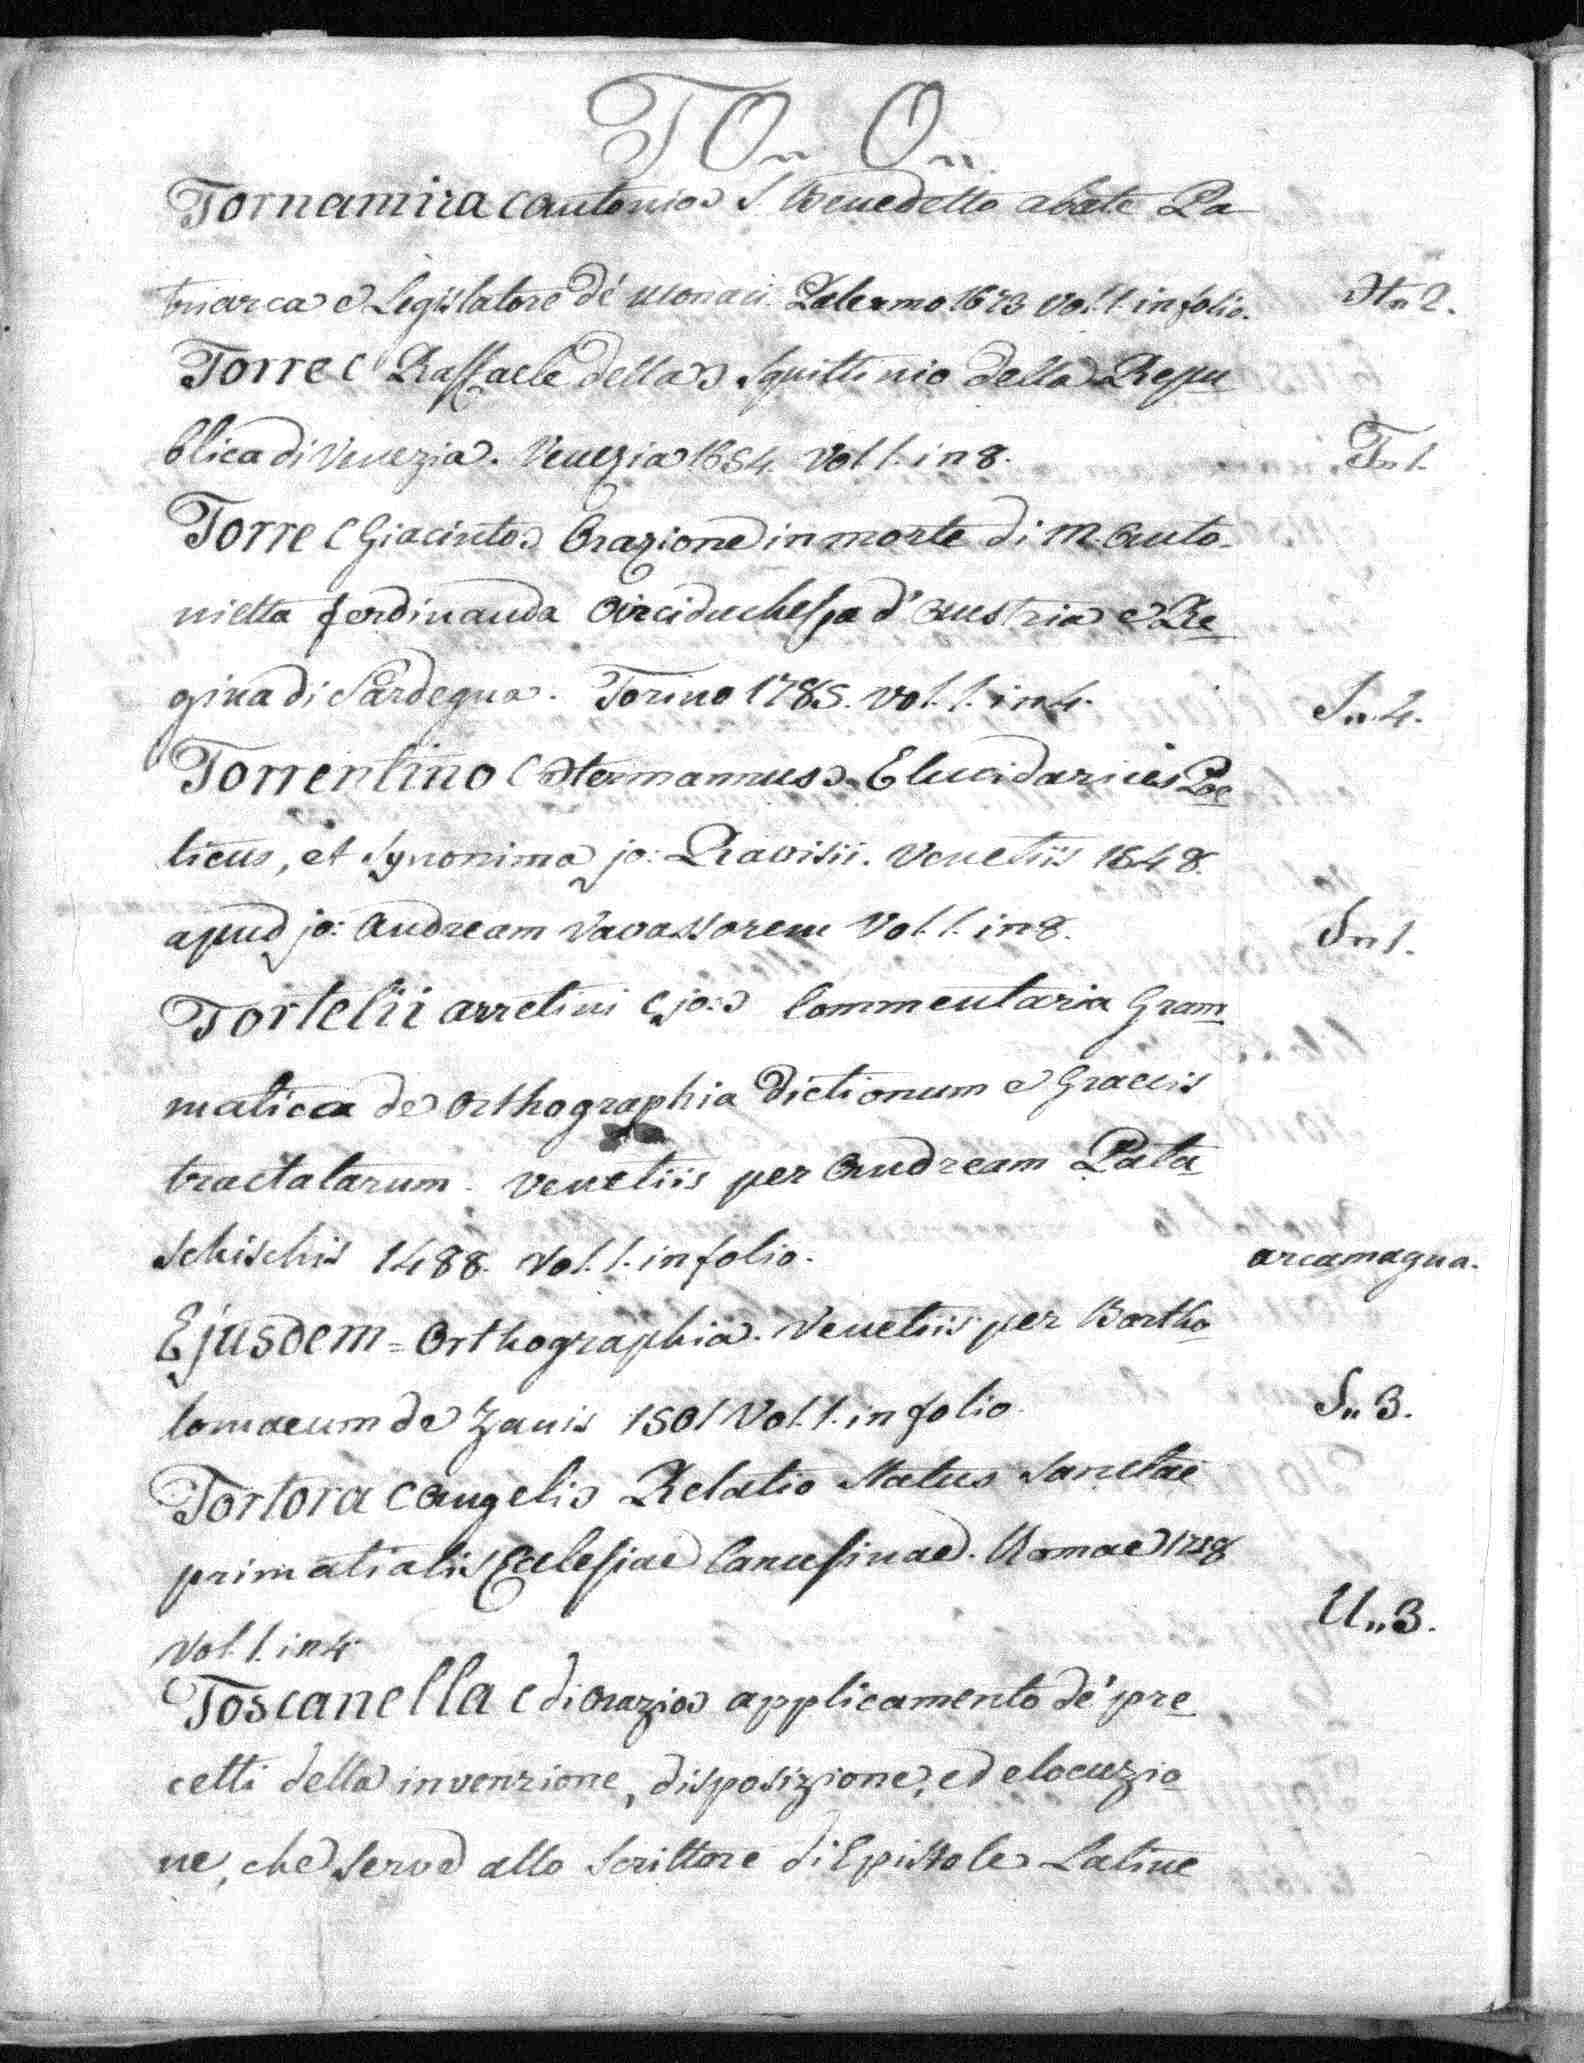 TO„ O„
Tornamira (Antonio) S. Benedetto abate Pa
triarca e Legislatore de' Monaci Palermo 1673 Vol. 1. in folio. H„ 2.
Torre (Raffaele della) Squittinio della Repu
blica di Venezia. Venezia 1654. Vol 1. in 8. T„ 1.
Torre (Giacinto) Orazione in morte di M. Anto-
nietta ferdinanda Arciduchessa d'Austria e Re
gina di Sardegna. Torino 1785. Vol. 1. in 4. S„ 4.
Torrentino (Hermannus) Elucidarius Poe
ticus, et Synonima jo: Ravisii. Venetiis 1548.
apud jo: Andream Vavassorem Vol. 1. in 8. S„ 1.
Tortelii arretini (jo:) Commentaria Gram
matica de Orthographia Dictionum e Graecis
tractatarum. Venetiis per Andream Pata
schischis 1488. Vol. 1. in folio. arcamagna.
Ejusdem = Orthographia. Venetiis per Bartho
lomaeum de Zanis 1501 Vol. 1. in folio. S„ 3.
Tortora (Angeli) Relatio Status Sanctae
primatialis Ecclesiae Canusinae. Romae
Vol. 1. in 4. U„ 3.
Toscanella (di Orazio) applicamento de' pre
cetti della invenzione, disposizione, ed elocuzio
ne, che serve allo Scrittore di Epistole Latine